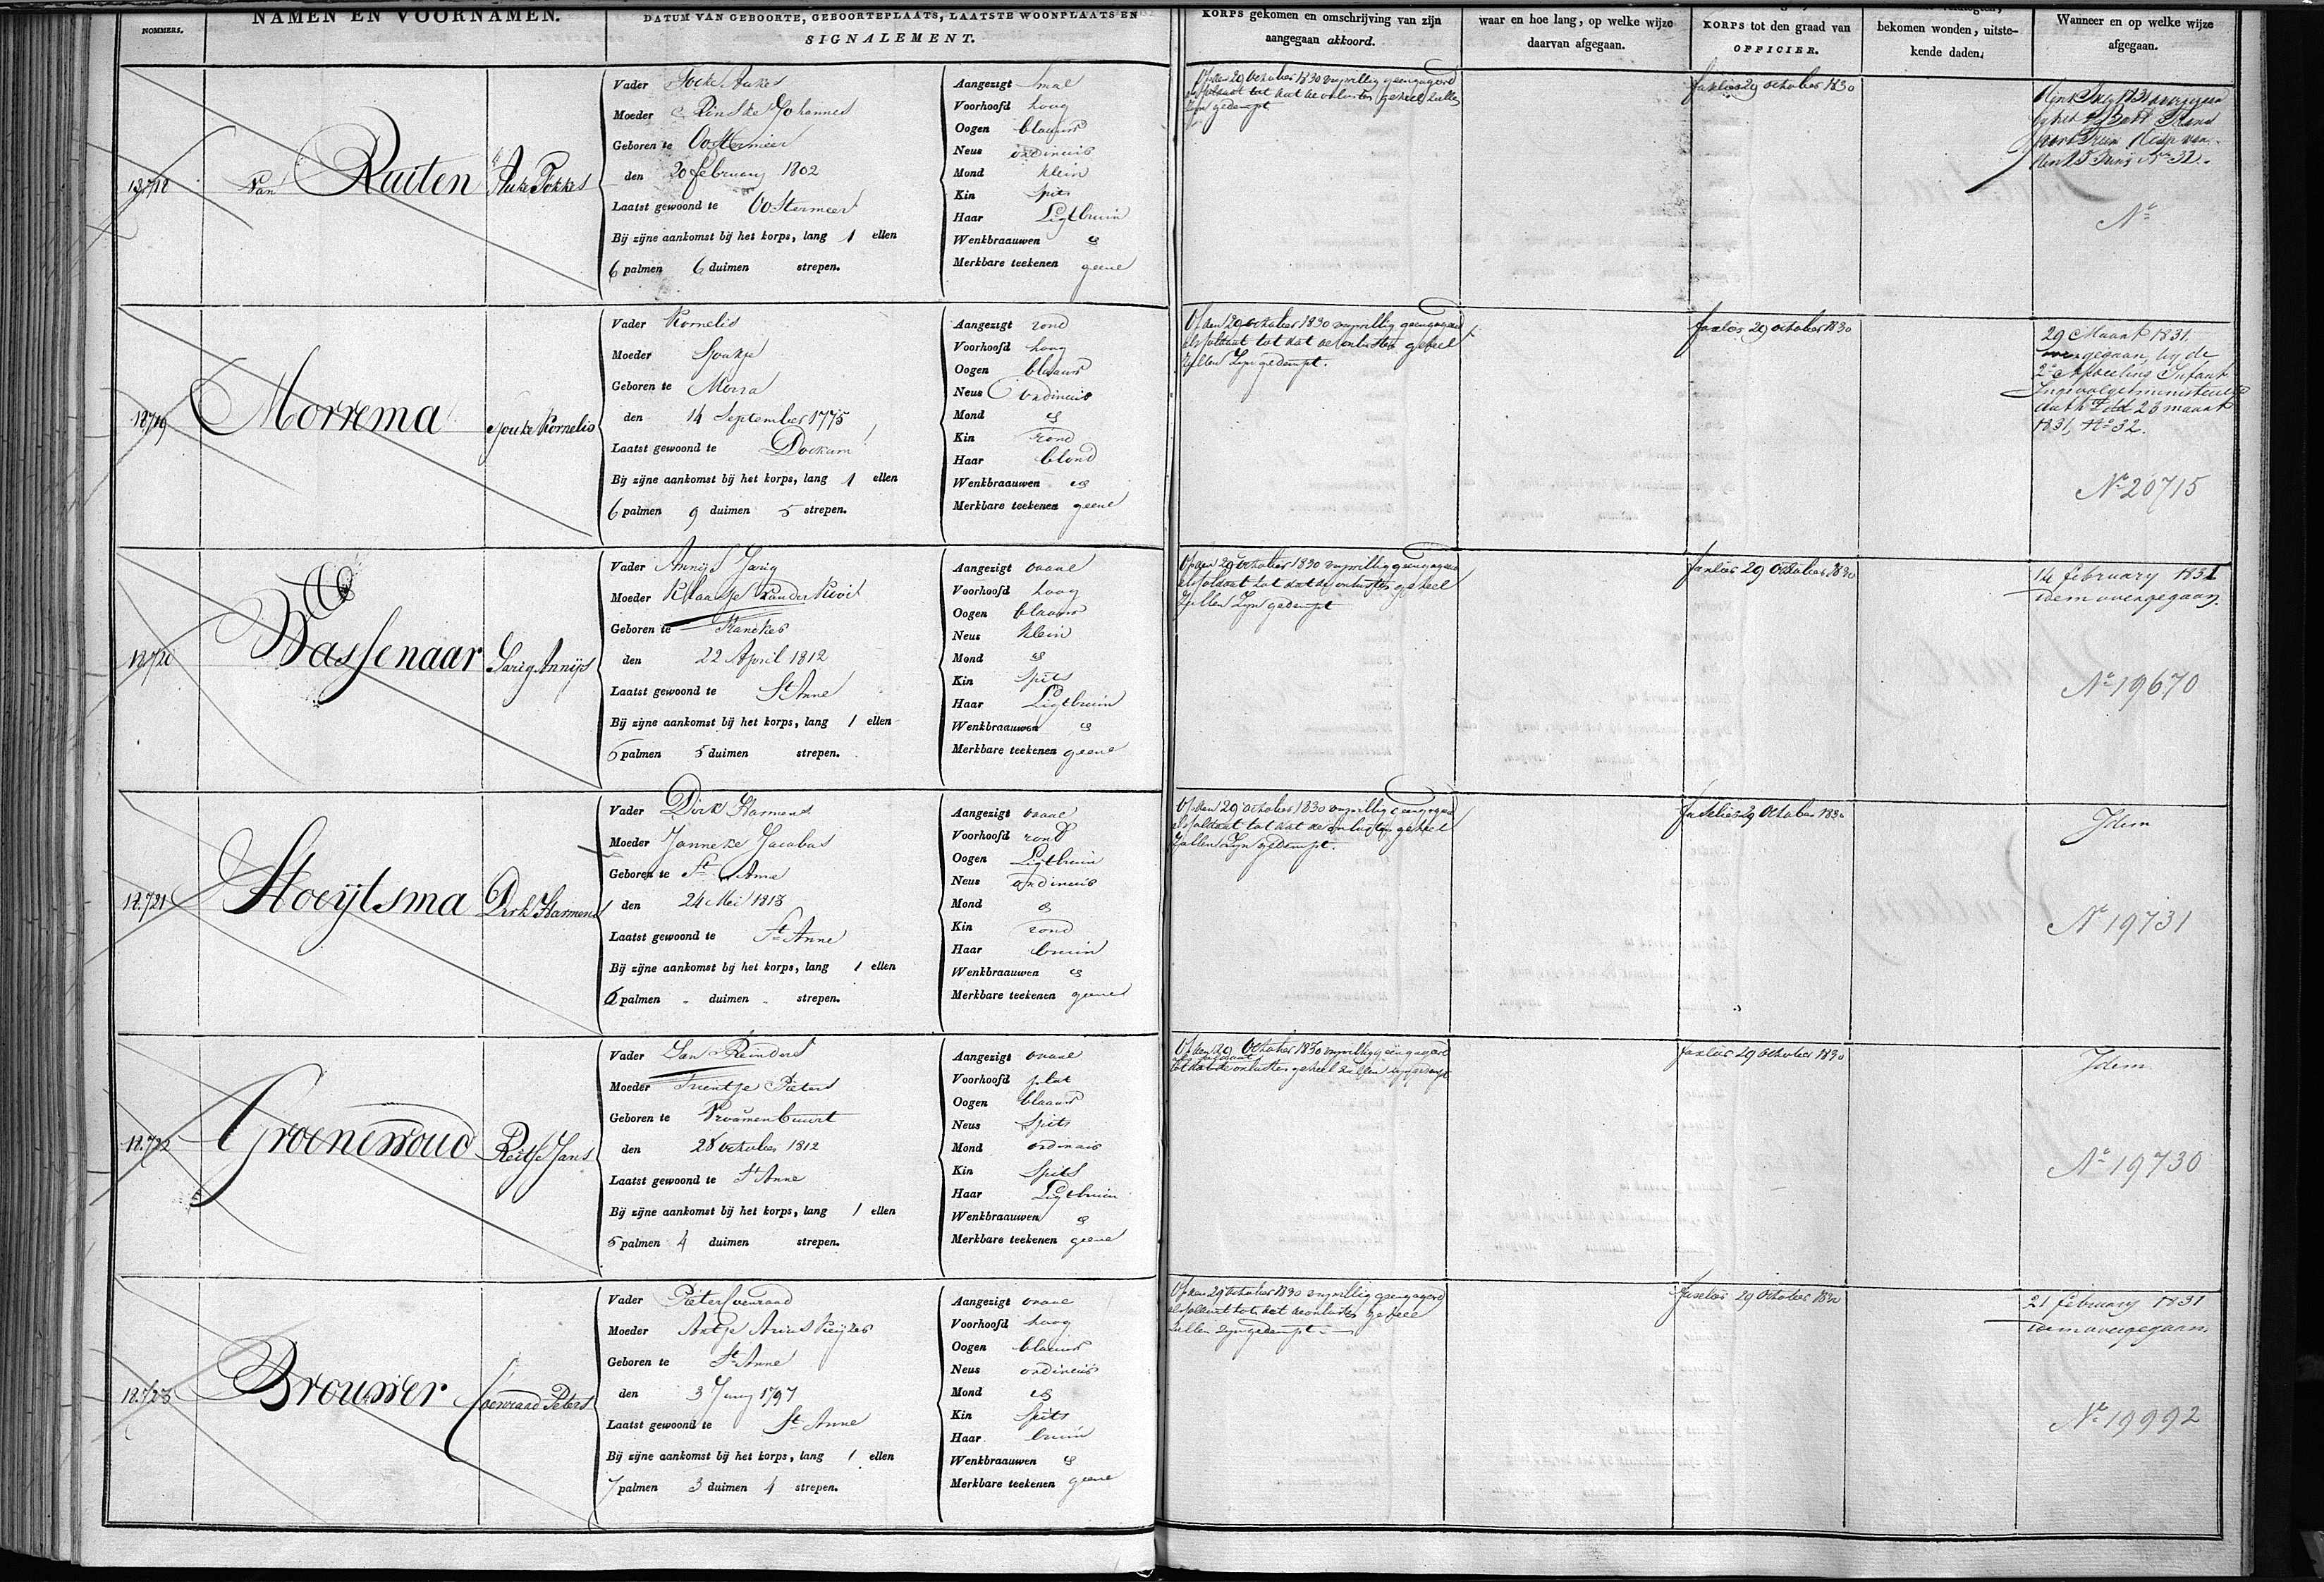 NOMMERS.
NAMEN EN VOORNAMEN.
DATUM VAN GEBOORTE, GEBOORTEPLAATS, LAATSTE WOONPLAATS EN
SIGNALEMENT.
KORPS gekomen en omschrijving van zijn
aangegaan akkoord.
waar en hoe lang, op welke wijze
daarvan afgegaan.
KORPS tot den graad van
OFFICIER.
bekomen wonden, uitste-
kende daden.
Wanneer en op welke wijze
afgegaan.
18718
van Ruiten
Auke Fokkes
Vader Focke Aukes
Moeder Rinske Johannes
Geboren te Oostermeer
den 20 february 1802
Laatst gewoond te Oostermeer
Bij zijne aankomst bij het korps, lang 1 ellen
6 palmen 6 duimen strepen.
Aangezigt smal
Voorhoofd hoog
Oogen blaauw
Neus ordinair
Mond klein
Kin spits
Haar Ligtbruin
Wenkbraauwen "
Merkbare teekenen geene
Op den 29 October 1830 vrywillig geengageerd
als soldaat tot dat de onlusten geheel zullen
zyn gedempt
fuselier 29 october 1830
No
18719
Morrema
Sjouke Kornelis
Vader Kornelis
Moeder Sjoukje
Geboren te Morra
den 14 September 1775
Laatst gewoond te Dockum
Bij zijne aankomst bij het korps, lang 1 ellen
6 palmen 9 duimen 5 strepen.
Aangezigt rond
Voorhoofd hoog
Oogen blaauw
Neus ordinair
Mond "
Kin rond
Haar blond
Wenkbraauwen "
Merkbare teekenen geene
Op den 29 october 1830 vrywillig geengageerd
als soldaat tot dat de onlusten geheel
zullen zyn gedempt.
fuselier 29 october 1830
29 Maart 1831
overgegaan by de
2e Afdeeling Infant.
Ingevolge ministerieele
auth. dd 23 maart
1831, No 32.
No 20715
18720
Wassenaar
Jarig Annijs
Vader Annijs Jarig
Moeder Klaasje van der
Geboren te Franeker
den 22 April 1812
Laatst gewoond te St Anne
Bij zijne aankomst bij het korps, lang 1 ellen
6 palmen 5 duimen strepen.
Aangezigt ovaal
Voorhoofd hoog
Oogen blaauw
Neus klein
Mond "
Kin spits
Haar Ligtbruin
Wenkbraauwen "
Merkbare teekenen geene
Op den 29 october 1830 vrywillig geengageerd
als soldaat tot dat de onlusten geheel
zullen zyn gedempt
fuselier 29 October 1830
14 february 1831
Idem overgegaan.
No 19670
18.721
Hoeijtsma
Dirk Harmens
Vader Dirk Harmens
Moeder Janneke Jacobus
Geboren te St Anna
den 24 Mei 1813
Laatst gewoond te St Anne
Bij zijne aankomst bij het korps, lang 1 ellen
6 palmen " duimen " strepen.
Aangezigt ovaal
Voorhoofd rond
Oogen Ligtbruin
Neus ordinair
Mond "
Kin rond
Haar bruin
Wenkbraauwen "
Merkbare teekenen geene
Op den 29 october 1830 vrywillig geengageerd
als soldaat tot dat de onlusten geheel
zullen zyn gedempt.
fuselier 29 October 1830
Idem
No 19731
18.722
Groenewoud
Reitse Jans
Vader Jan Reinders
Moeder Trientje Pieters
Geboren te Vrouwenbuurt
den 28 october 1812
Laatst gewoond te St Anne
Bij zijne aankomst bij het korps, lang 1 ellen
5 palmen 4 duimen strepen.
Aangezigt ovaal
Voorhoofd plat
Oogen blaauw
Neus spits
Mond ordinair
Kin spits
Haar Ligtbruin
Wenkbraauwen "
Merkbare teekenen geene
Op den 29 October 1830 vrywillig geëngageerd
als soldaat
tot dat de onlusten geheel zullen zyn gedempt
fuselier 29 October 1830
Idem
No 19730
18.723
Brouwer
Coenraad Peters
Vader Pieter Coenraad
Moeder Antje Aries
Geboren te St Anne
den 3 Juny 1797
Laatst gewoond te St Anne
Bij zijne aankomst bij het korps, lang 1 ellen
7 palmen 3 duimen 4 strepen.
Aangezigt ovaal
Voorhoofd hoog
Oogen blaauw
Neus ordinair
Mond "
Kin spits
Haar bruin
Wenkbraauwen "
Merkbare teekenen geene
Op den 29 October 1830 vrywillig geengageerd
als soldaat tot dat de onlusten geheel
zullen zyn gedempt
fuselier 29 October 1830
21 february 1831
Idem overgegaan.
No 19992